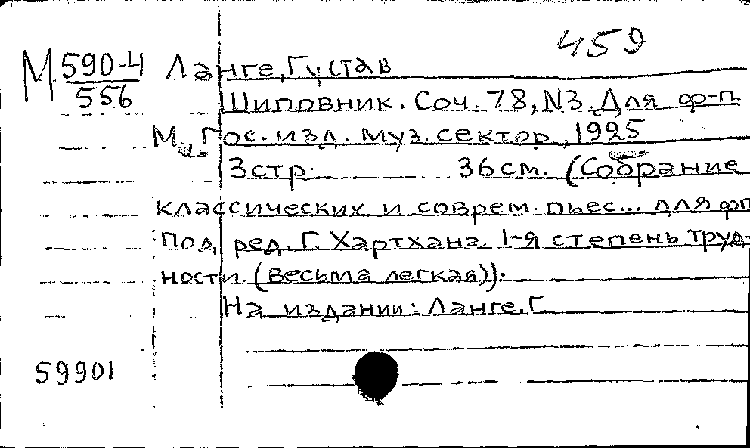 459
М 590-4 Ланге, Густав
556
Шиповник. Соч. 78, N3. Для ф-п.
М., Гос. изд. муз. сектор, 1925
3стр. 36см. (Собрание
классических и соврем. пьес... для фп
Под ред. Г. Хартхана. 1-я степень труд-
ности. (весьма легкая)).
На издании: Ланге, Г.
59901